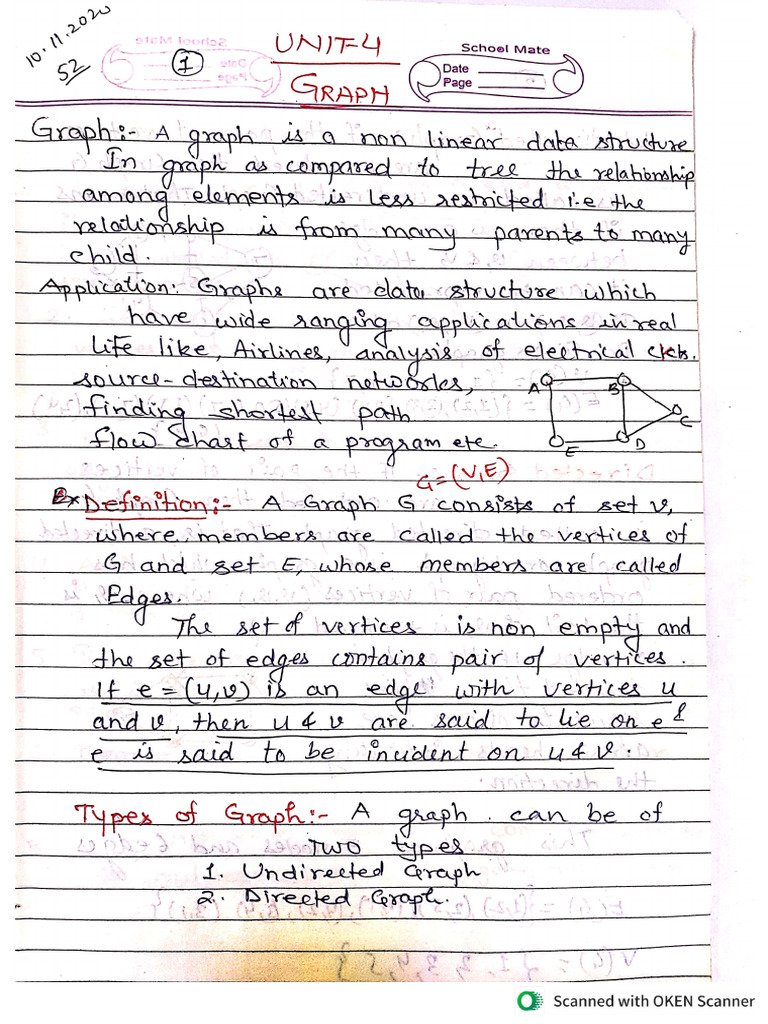 10.11.2020
52
1
UNIT-4
GRAPH
School Mate
Date
Page
Graph:- A graph is a non linear data structure
In graph as compared to tree the relationship
among elements is less restricted i.e the
relationship is from many parents to many
child.
Application: Graphs are data structure which
have wide ranging applications in real
life like, Airlines, analysis of electrical ckts.
source-destination networks,
finding shortest path
flow chart of a program etc.
A B C D E
G=(V,E)
Definition:- A Graph G consists of set v,
where members are called the vertices of
G and set E, whose members are called
Edges.
The set of vertices is non empty and
the set of edges contains pair of vertices.
If e = (u,v) is an edge with vertices u
and v, then u & v are said to lie on e &
e is said to be incident on u & v.
Types of Graph:- A graph can be of
TWO types
1. Undirected Graph
2. Directed Graph.
Scanned with OKEN Scanner